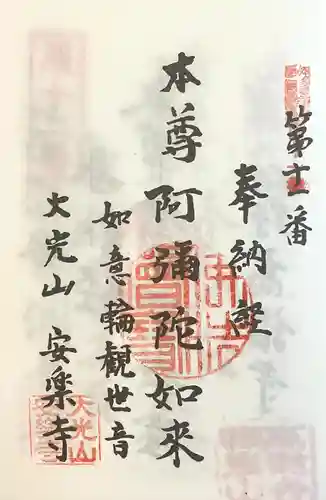 第十一番
奉納經
本尊阿彌陀如来
如意輪観世音
大光山 安楽寺
大光山